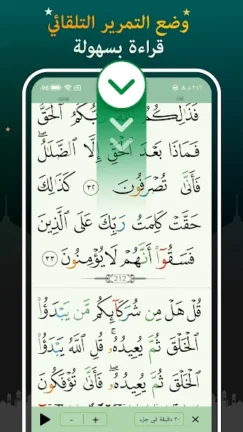 وضع التمرير التلقائي
قراءة بسهولة
فَذَٰلِكُمُ ... رَبُّكُمُ الْحَقُّ
فَمَاذَا بَعْدَ الْحَقِّ إِلَّا الضَّلَٰلُ
فَأَنَّىٰ تُصْرَفُونَ ٣٢ كَذَٰلِكَ
حَقَّتْ كَلِمَتُ رَبِّكَ عَلَى الَّذِينَ
فَسَقُوٓا۟ أَنَّهُمْ لَا يُؤْمِنُونَ ٣٣
212
قُلْ هَلْ مِن شُرَكَآئِكُم مَّن يَبْدَؤُا۟
الْخَلْقَ ثُمَّ يُعِيدُهُۥ ۚ قُلِ اللَّهُ يَبْدَؤُا۟
الْخَلْقَ ثُمَّ يُعِيدُهُۥ ۖ فَأَنَّىٰ تُؤْفَكُونَ
- + ٣٠ دقيقة في جزء ×